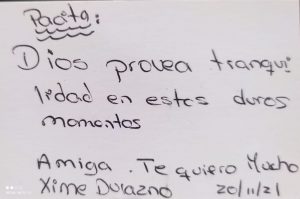 Pacita:
Dios provea tranqui
lidad en estos duros
momentos
Amiga. Te quiero Mucho
Xime Durazno 20/11/21